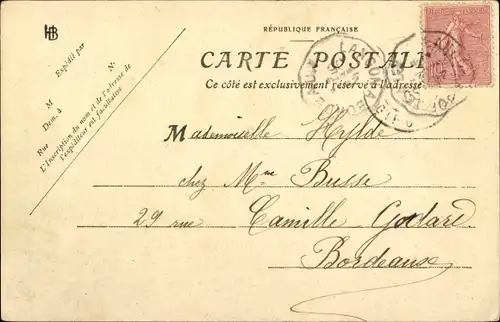 HB
RÉPUBLIQUE FRANÇAISE
CARTE POSTALE
Ce côté est exclusivement réservé à l'adresse
Expédié par
M
Dem. à
Rue
N°
L'Inscription du nom et de l'adresse de
l'expéditeur est facultative
Mademoiselle Hylde
chez Mme Busse
29 rue Camille Godard
Bordeaux